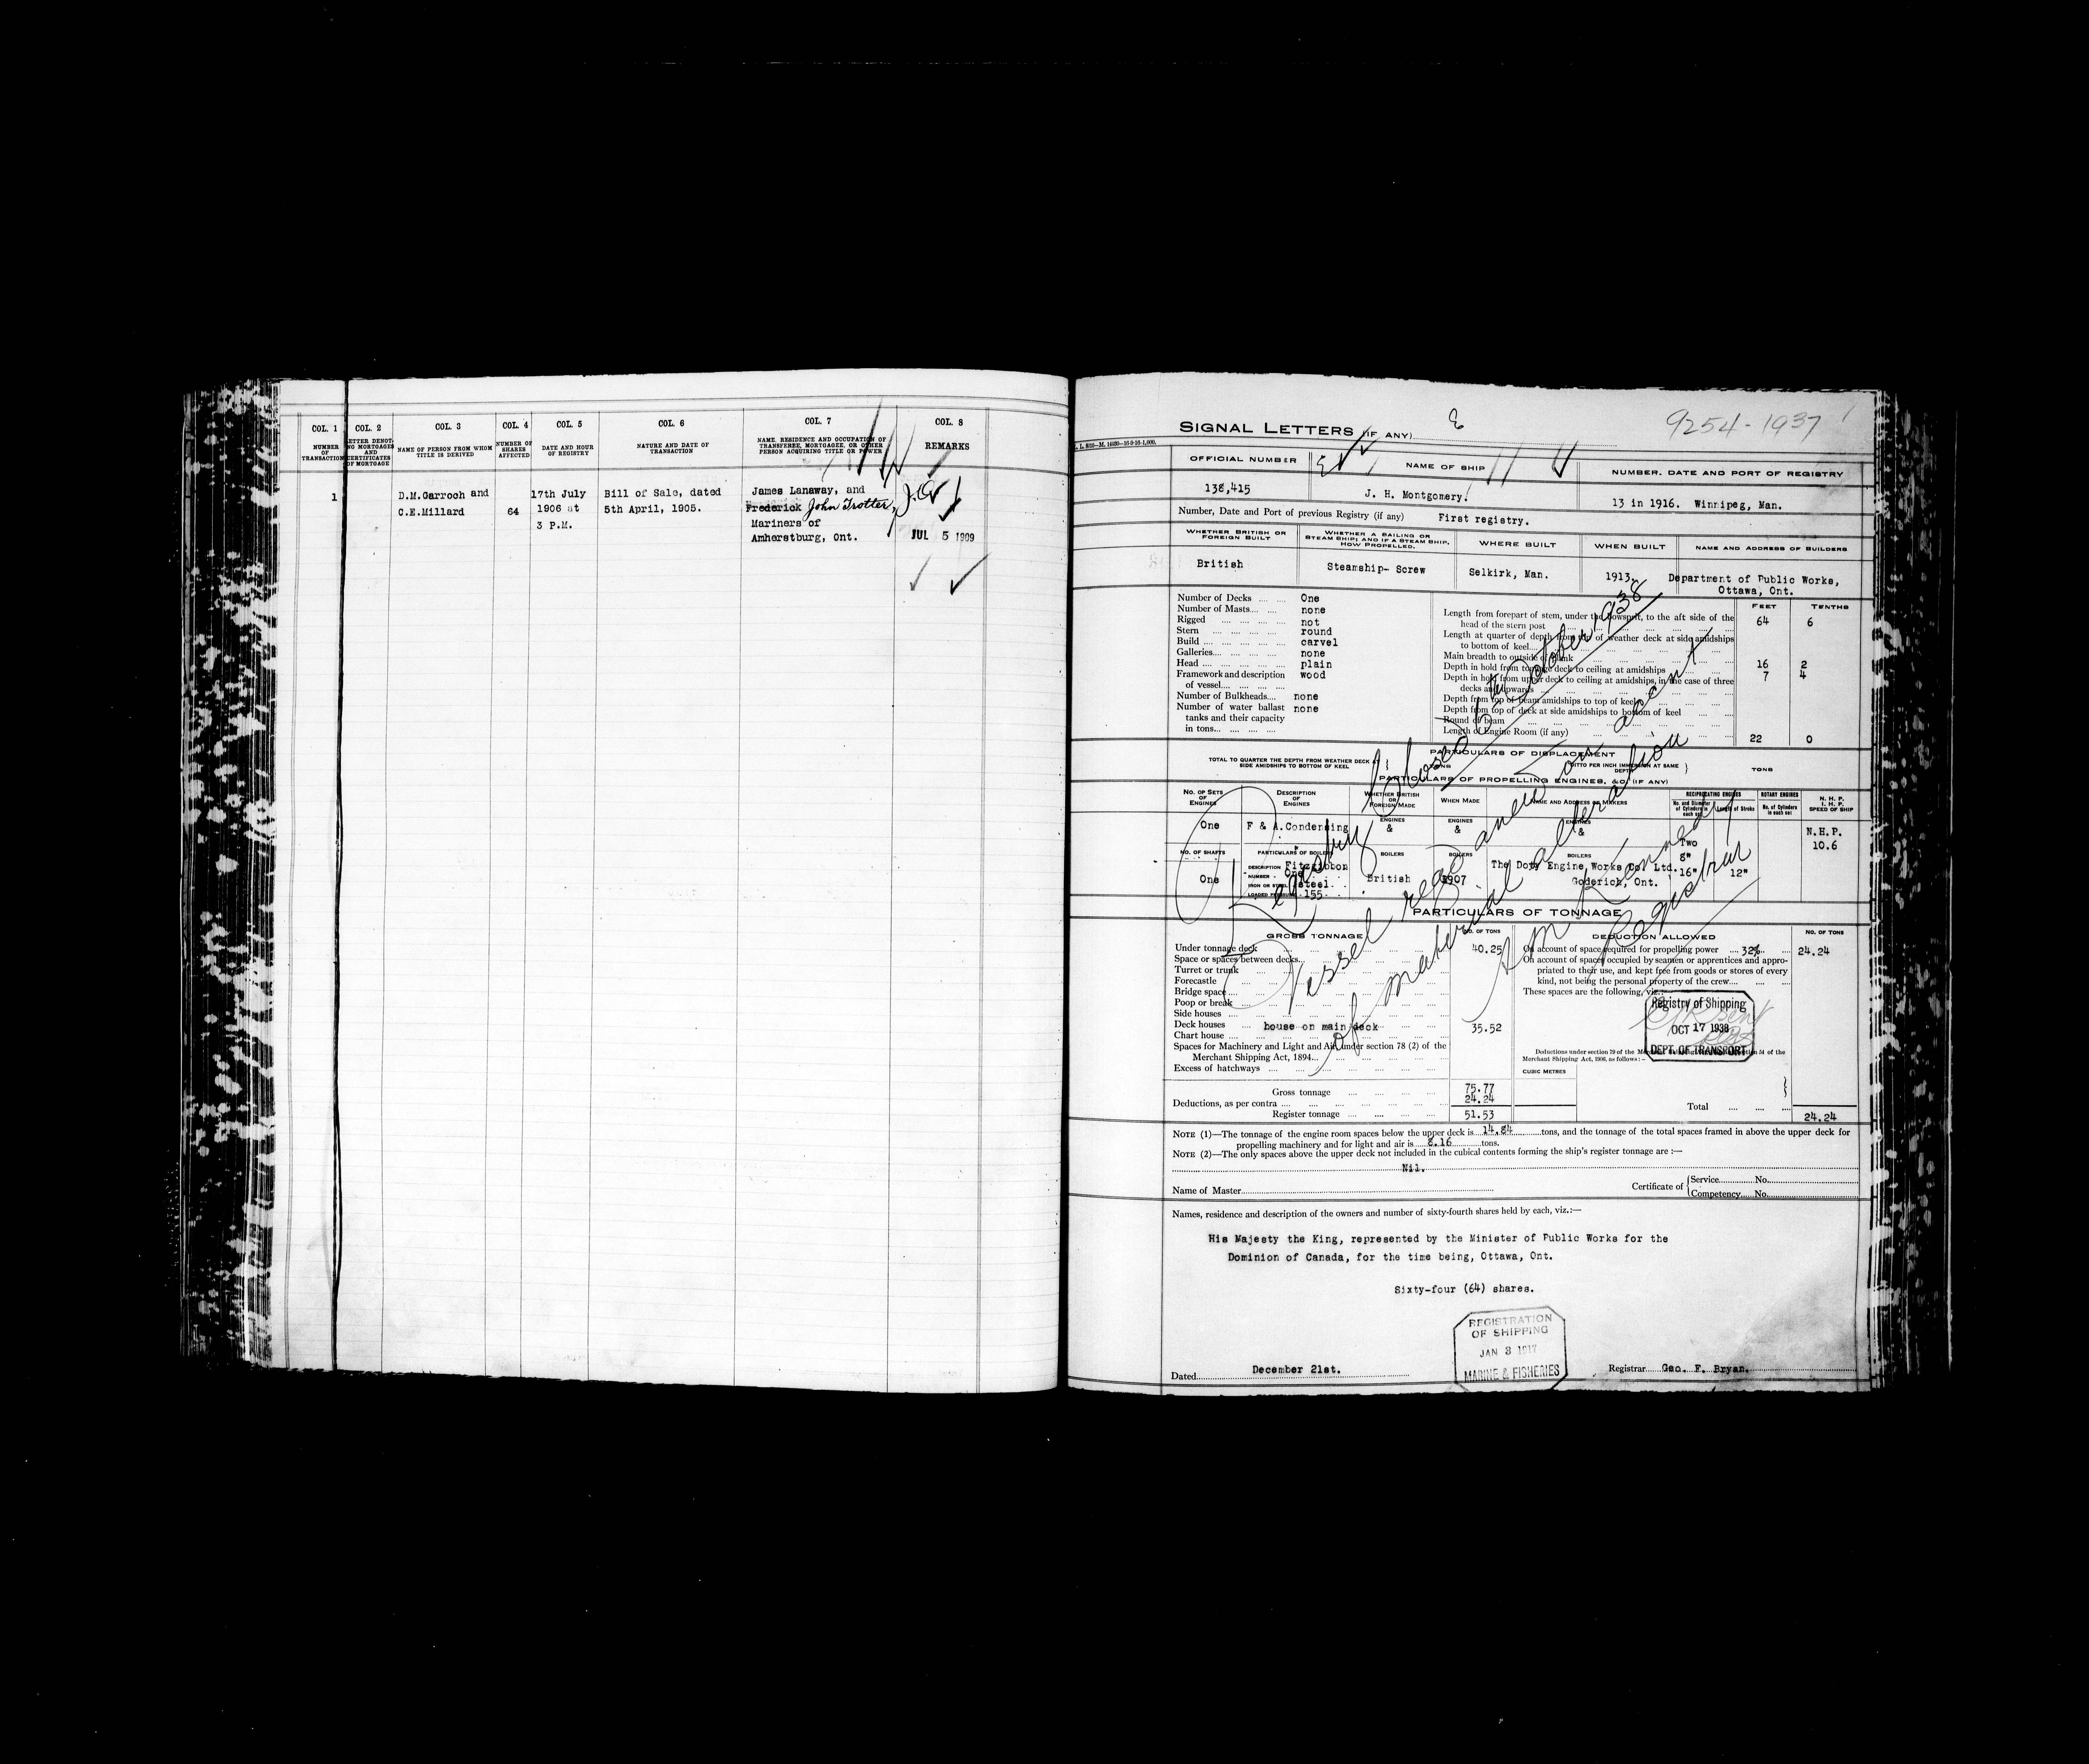 COL. 1 COL. 2 COL. 3 COL. 4 COL. 5 COL. 6 COL. 7 COL. 8
NUMBER OF TRANSACTION
LETTER DENOT- NG MORTGAGES AND CERTIFICATES OF MORTGAGE
NAME OF PERSON FROM WHOM TITLE IS DERIVED
NUMBER OF SHARES AFFECTED
DATE AND HOUR OF REGISTRY
NATURE AND DATE OF TRANSACTION
NAME, RESIDENCE AND OCCUPATION OF TRANSFEREE, MORTGAGEE, OR OTHER PERSON ACQUIRING TITLE OR POWER
REMARKS
1
D.M.Garroch and
C.E.Millard
64
17th July
1906 at
3 P.M.
Bill of Sale, dated
5th April, 1905.
James Lanaway, and
Frederick John Trotter,
Mariners of
Amherstburg, Ont.
JUL 5 1909
9254-1937
SIGNAL LETTERS (IF ANY)
OFFICIAL NUMBER
NAME OF SHIP
NUMBER, DATE AND PORT OF REGISTRY
138,415
J. H. Montgomery.
13 in 1916. Winnipeg, Man.
Number, Date and Port of previous Registry (if any) First registry.
WHETHER BRITISH OR FOREIGN BUILT
WHETHER A SAILING OR STEAM SHIP; AND IF A STEAM SHIP, HOW PROPELLED.
WHERE BUILT
WHEN BUILT
NAME AND ADDRESS OF BUILDERS
British
Steamship- Screw
Selkirk, Man.
1913,
Department of Public Works,
Ottawa, Ont.
Number of Decks One
Number of Masts none
Rigged not
Stern round
Build carvel
Galleries none
Head plain
Framework and description
of vessel wood
Number of Bulkheads none
Number of water ballast none
tanks and their capacity
in tons
FEET TENTHS
Length from forepart of stem, under the bowsprit, to the aft side of the
head of the stern post 64 6
Length at quarter of depth from top of weather deck at side amidships
to bottom of keel
Main breadth to outside of plank 16 2
Depth in hold from tonnage deck to ceiling at amidships 7 4
Depth in hold from upper deck to ceiling at amidships, in the case of three
decks and upwards
Depth from top of beam amidships to top of keel
Depth from top of deck at side amidships to bottom of keel
Round of beam
Length of Engine Room (if any) 22 0
PARTICULARS OF DISPLACEMENT
TOTAL TO QUARTER THE DEPTH FROM WEATHER DECK AT SIDE AMIDSHIPS TO BOTTOM OF KEEL
TONS
DITTO PER INCH IMMERSION AT SAME DEPTH
TONS
PARTICULARS OF PROPELLING ENGINES, &C. (IF ANY)
NO. OF SETS OF ENGINES
DESCRIPTION OF ENGINES
WHETHER BRITISH OR FOREIGN MADE
WHEN MADE
NAME AND ADDRESS OF MAKERS
RECIPROCATING ENGINES
No. and Diameter of Cylinders in each set
Length of Stroke
ROTARY ENGINES
No. of Cylinders in each set
N. H. P.
I. H. P.
SPEED OF SHIP
One
F & A.Condensing
ENGINES &
ENGINES &
ENGINES &
N.H.P.
10.6
Two
8"
16" 12"
NO. OF SHAFTS
PARTICULARS OF BOILERS
BOILERS
BOILERS
BOILERS
DESCRIPTION Fitzgibbon
NUMBER One
IRON OR STEEL steel
LOADED PRESSURE 155
One
British
1907
The Doty Engine Works Co. Ltd.
Goderich, Ont.
PARTICULARS OF TONNAGE
GROSS TONNAGE NO. OF TONS
Under tonnage deck 40.25
Space or spaces between decks
Turret or trunk
Forecastle
Bridge space
Poop or break
Side houses
Deck houses house on main deck 35.52
Chart house
Spaces for Machinery and Light and Air, under section 78 (2) of the
Merchant Shipping Act, 1894
Excess of hatchways
Gross tonnage 75.77
Deductions, as per contra 24.24
Register tonnage 51.53
DEDUCTION ALLOWED NO. OF TONS
On account of space required for propelling power 32% 24.24
On account of spaces occupied by seamen or apprentices and appro-
priated to their use, and kept free from goods or stores of every
kind, not being the personal property of the crew
These spaces are the following, viz.:
Registry of Shipping
OCT 17 1938
DEPT. OF TRANSPORT
CUBIC METRES
Total 24.24
Registry Closed October 1938
Vessel reg'd anew on account
of material alteration
Registrar
NOTE (1)—The tonnage of the engine room spaces below the upper deck is 14.84 tons, and the tonnage of the total spaces framed in above the upper deck for
propelling machinery and for light and air is 8.16 tons.
NOTE (2)—The only spaces above the upper deck not included in the cubical contents forming the ship's register tonnage are :—
Nil.
Name of Master
Certificate of
Service No.
Competency No.
Names, residence and description of the owners and number of sixty-fourth shares held by each, viz.:—
His Majesty the King, represented by the Minister of Public Works for the
Dominion of Canada, for the time being, Ottawa, Ont.
Sixty-four (64) shares.
REGISTRATION
OF SHIPPING
JAN 3 1917
MARINE & FISHERIES
Dated December 21st.
Registrar Geo. F. Bryan.